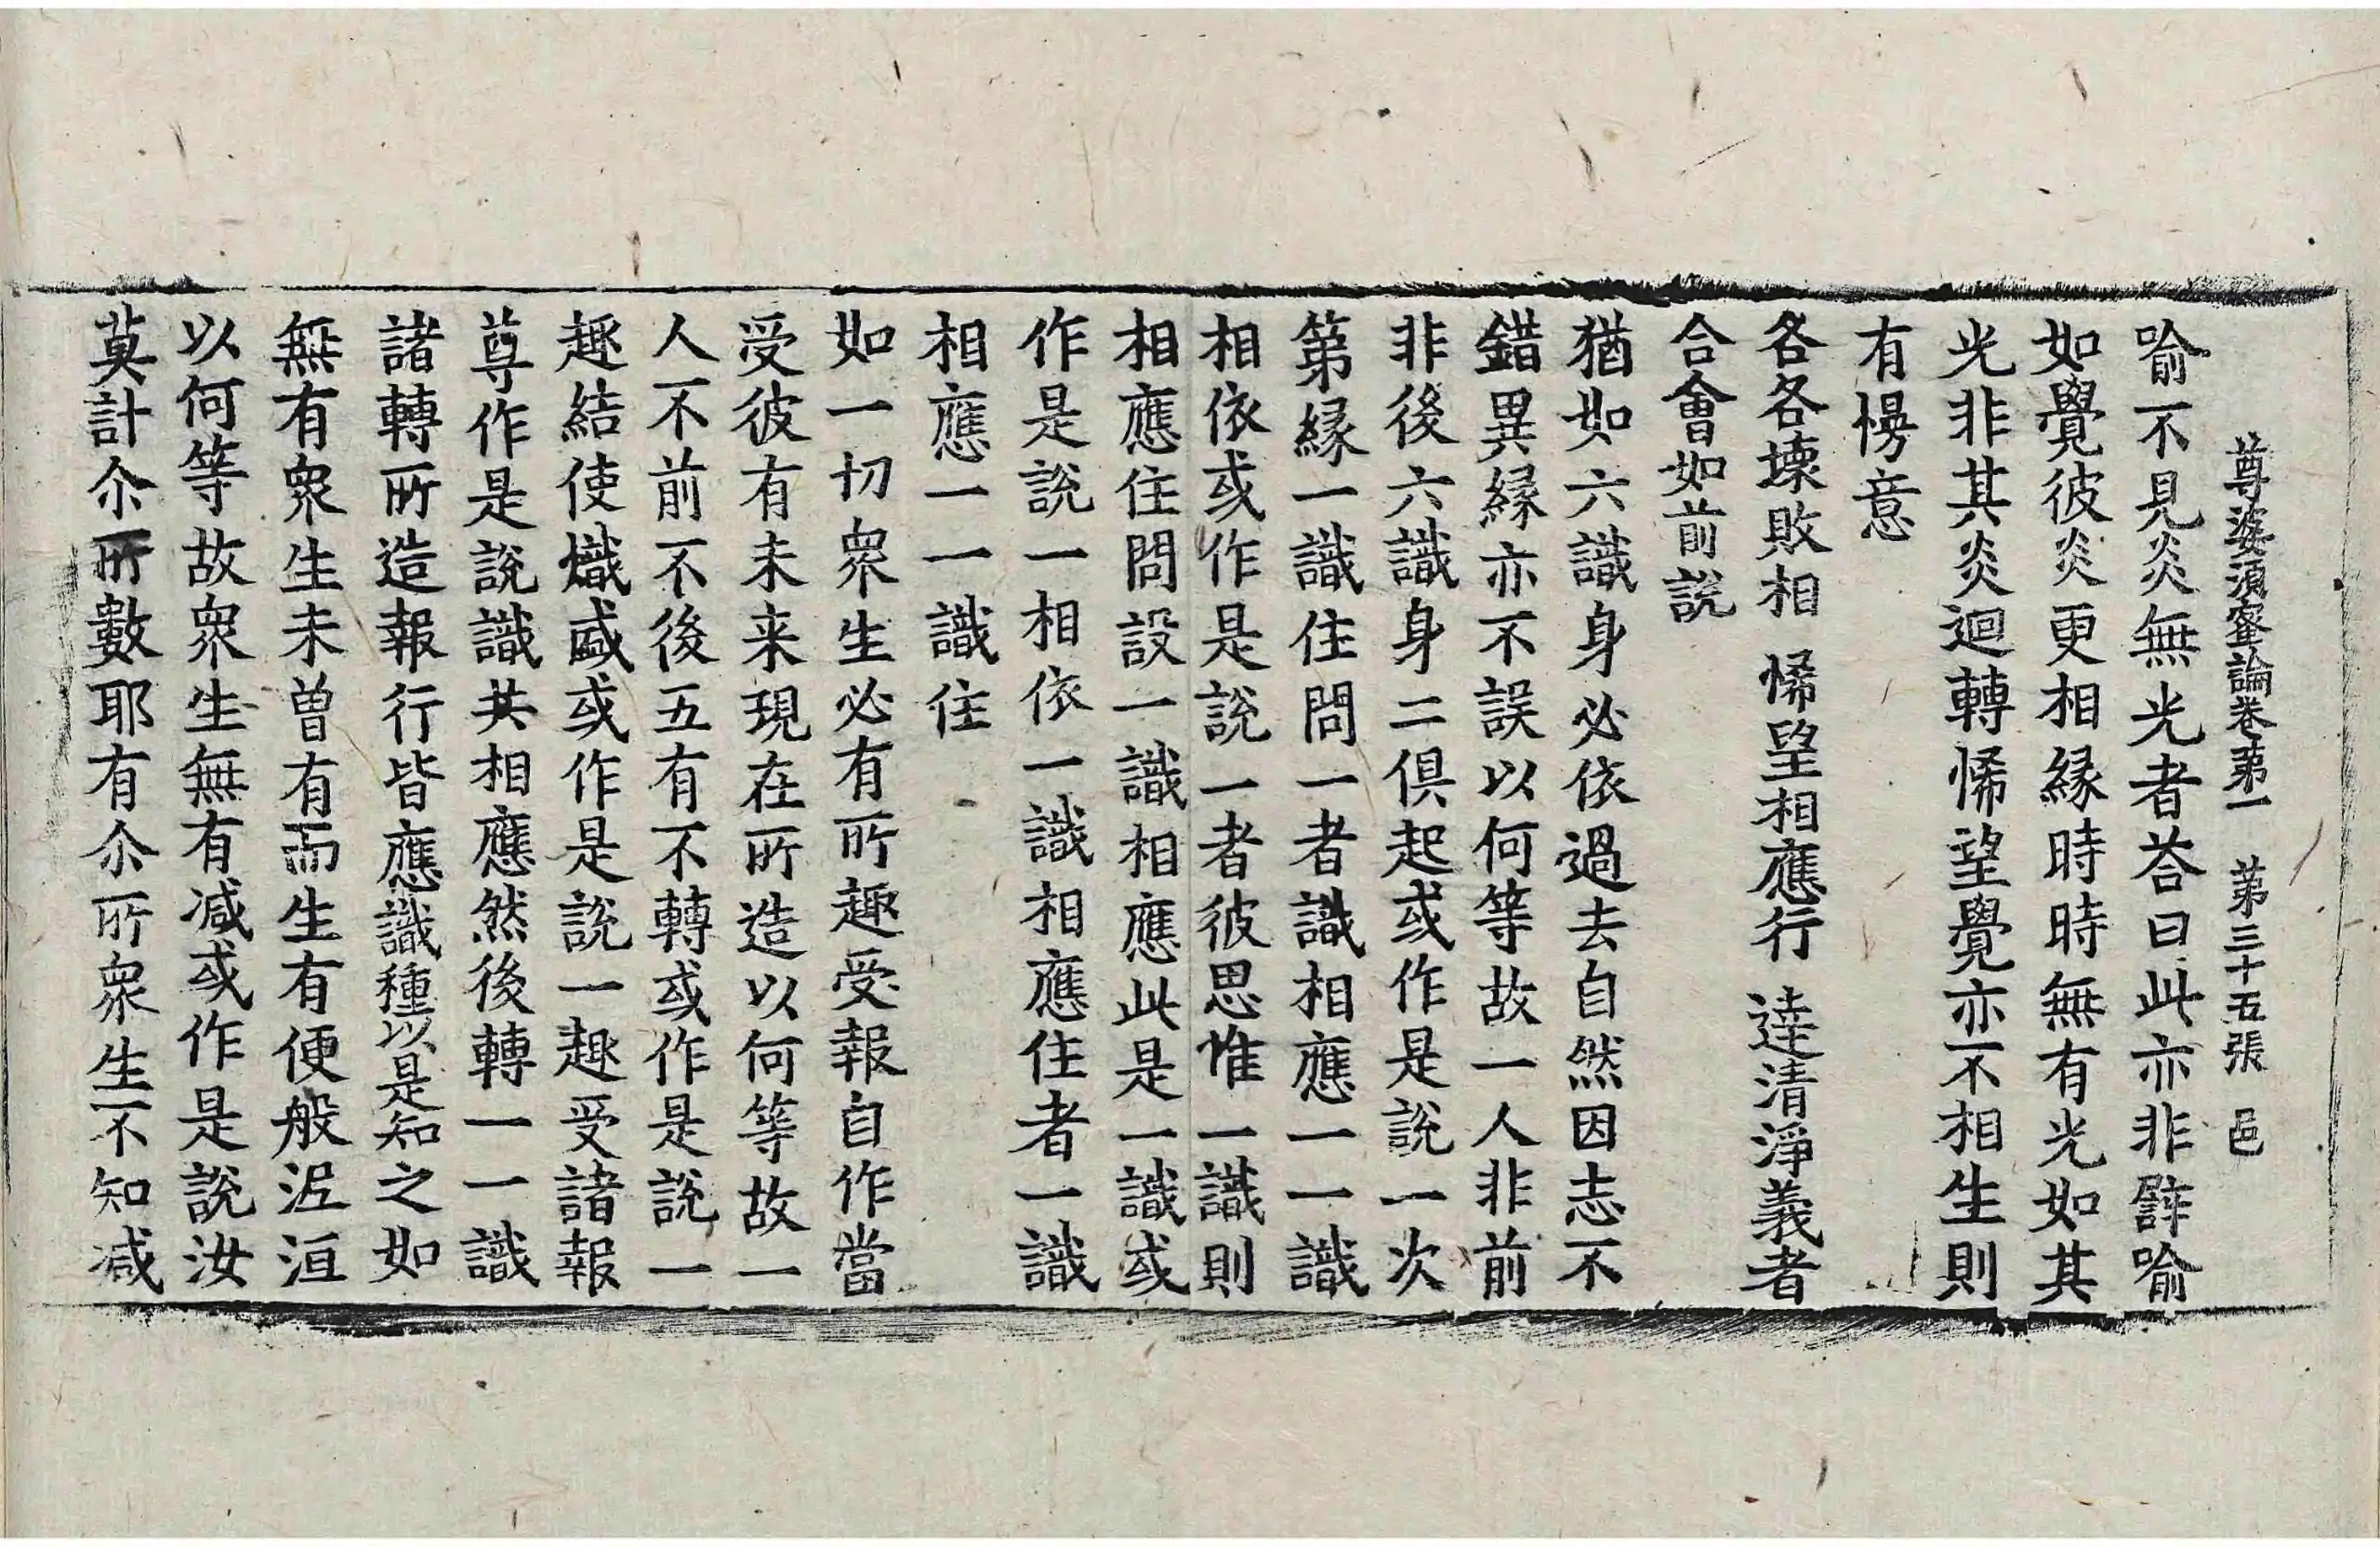 尊婆須蜜論卷第一　第三十五張　邑
喻不見炎無光者荅曰此亦非辟喻
如覺彼炎更相縁時時無有光如其
光非其炎迴轉悕望覺亦不相生則
有慢意
各各壞敗相　悕望相應行　逹清淨義者
合會如前説
猶如六識身必依過去自然因志不
錯異縁亦不誤以何等故一人非前
非後六識身二俱起或作是説一次
第縁一識住問一者識相應一一識
相依或作是説一者彼思惟一識則
相應住問設一識相應此是一識或
作是説一相依一識相應住者一識
相應一一識住
如一切衆生必有所趣受報自作當
受彼有未来現在所造以何等故一
人不前不後五有不轉或作是説一
趣結使熾盛或作是説一趣受諸報
尊作是説識共相應然後轉一一識
諸轉所造報行皆應識種以是知之如
無有衆生未曾有而生有便般泥洹
以何等故衆生無有减或作是説汝
莫計尒所數耶有尒所衆生不知减